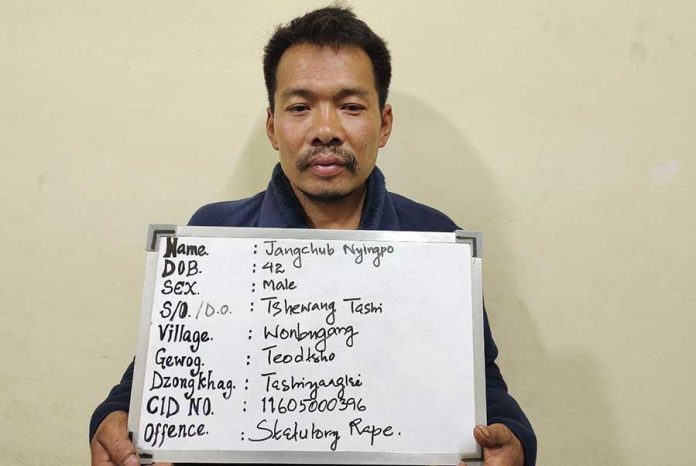 Name. : Jangchub Nyingpo
DOB. : 42
SEX. : Male
S/O./D.O. : Tshewang Tashi
Village. : Wonbugang
Gewog. : Teodtsho
Dzongkhag. : Tashiyangtsi
CID NO. : 11605000396
Offence. : Statutory Rape.